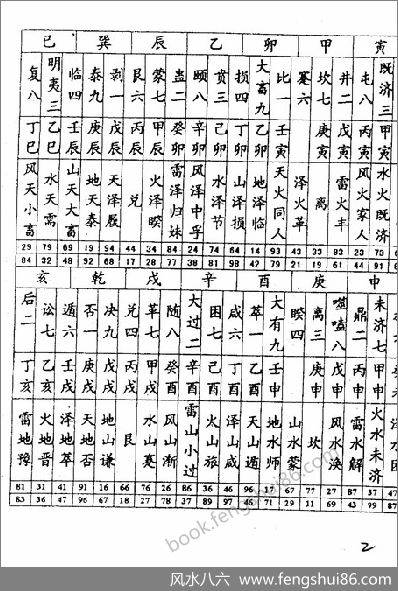 巳 巽 辰 乙 卯 甲 寅
复八 明夷三 临四 泰九 剥一 艮六 蒙七 蛊二 颐八 贲三 损四 大畜九 比一 蹇六 坎七 井二 屯八 既济三
丁巳 乙巳 壬辰 庚辰 戊辰 丙辰 甲辰 癸卯 辛卯 己卯 丁卯 乙卯 壬寅 庚寅 戊寅 丙寅 甲寅
风天小畜 水天需 山天大畜 地天泰 天泽履 兑 火泽睽 雷泽归妹 风泽中孚 水泽节 山泽损 地泽临 天火同人 泽火革 离 雷火丰 风火家人 水火既济
亥 乾 戌 辛 酉 庚 申
后二 讼七 遁六 否一 决九 兑四 革七 随八 大过二 困七 咸六 萃一 大有九 睽四 离三 噬嗑八 鼎二 未济七
丁亥 乙亥 壬戌 庚戌 戊戌 丙戌 甲戌 癸酉 辛酉 己酉 丁酉 乙酉 壬申 庚申 戊申 丙申 甲申
雷地豫 火地晋 泽地萃 天地否 地山谦 艮 水山蹇 风山渐 雷山小过 火山旅 泽山咸 天山遁 地水师 山水蒙 坎 风水涣 雷水解 火水未济
81 31 41 91 16 66 76 26 86 36 46 96 17 67 77 27 87 37 47
83 36 47 96 67 18 27 78 37 89 97 46 71 29 11 69 43 79 87
book.fengshui86.com
2
风水八六 www.fengshui86.com